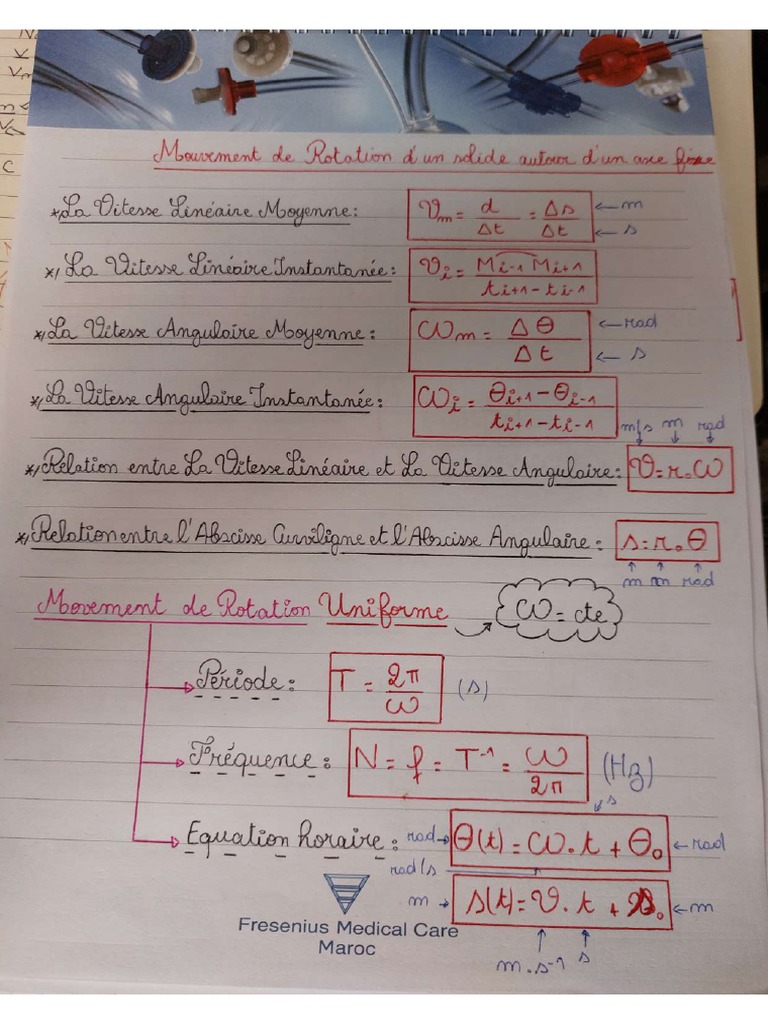 Mouvement de Rotation d'un solide autour d'un axe fixe
*/ La Vitesse Linéaire Moyenne : Vm = d/Δt = Δs/Δt ← m ← s
*/ La Vitesse Linéaire Instantanée : Vi = Mi-1 Mi+1 / ti+1 - ti-1
*/ La Vitesse Angulaire Moyenne : ωm = Δθ/Δt ← rad ← s
*/ La Vitesse Angulaire Instantanée : ωi = θi+1 - θi-1 / ti+1 - ti-1
m/s m rad
*/ Relation entre La Vitesse Linéaire et La Vitesse Angulaire : V = r.ω
*/ Relation entre l'Abscisse Curviligne et l'Abscisse Angulaire : s = r.θ
m m rad
Movement de Rotation Uniforme → ω = cte
Période : T = 2π/ω (s)
Fréquence : N = f = T⁻¹ = ω/2π (Hz)
s
Equation horaire : rad → θ(t) = ω.t + θ₀ ← rad
rad/s
m → s(t) = V.t + s₀ ← m
m.s⁻¹ s
Fresenius Medical Care
Maroc